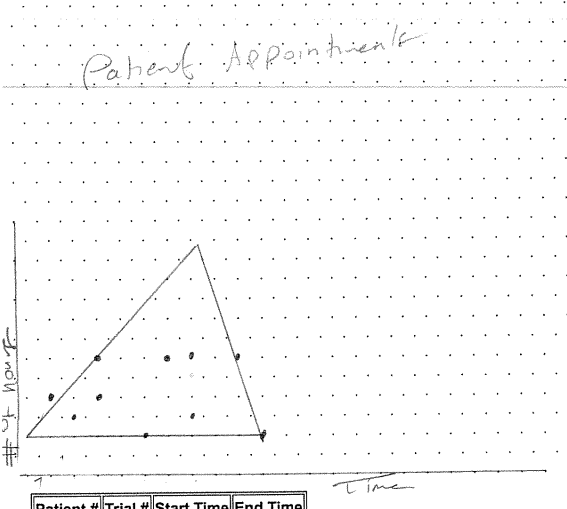 Patient Appointments
# of hours
1
Time
Patient # Trial # Start Time End Time